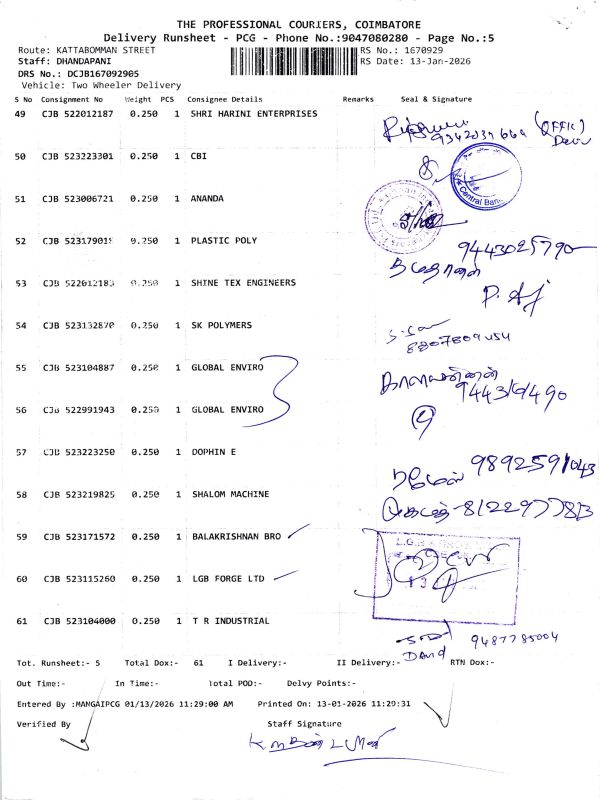 THE PROFESSIONAL COURIERS, COIMBATORE
Delivery Runsheet - PCG - Phone No.:9047080280 - Page No.:5
Route: KATTABOMMAN STREET RS No.: 1670929
Staff: DHANDAPANI RS Date: 13-Jan-2026
DRS No.: DCJB167092905
Vehicle: Two Wheeler Delivery
S No Consignment No Weight PCS Consignee Details Remarks Seal & Signature
49 CJB 522012187 0.250 1 SHRI HARINI ENTERPRISES
(OFFIC)
50 CJB 523223301 0.250 1 CBI
Central Bank
51 CJB 523006721 0.250 1 ANANDA
52 CJB 523179018 0.250 1 PLASTIC POLY
9443025790
53 CJB 522012183 0.250 1 SHINE TEX ENGINEERS
54 CJB 523132870 0.250 1 SK POLYMERS
8807809454
55 CJB 523104887 0.250 1 GLOBAL ENVIRO
56 CJB 522991943 0.250 1 GLOBAL ENVIRO
57 CJB 523223250 0.250 1 DOPHIN E
58 CJB 523219825 0.250 1 SHALOM MACHINE
59 CJB 523171572 0.250 1 BALAKRISHNAN BRO
60 CJB 523115260 0.250 1 LGB FORGE LTD
61 CJB 523104000 0.250 1 T R INDUSTRIAL
9487785004
David
Tot. Runsheet:- 5 Total Dox:- 61 I Delivery:- II Delivery:- RTN Dox:-
Out Time:- In Time:- Total POD:- Delvy Points:-
Entered By :MANGAIPCG 01/13/2026 11:29:00 AM Printed On: 13-01-2026 11:29:31
Verified By Staff Signature